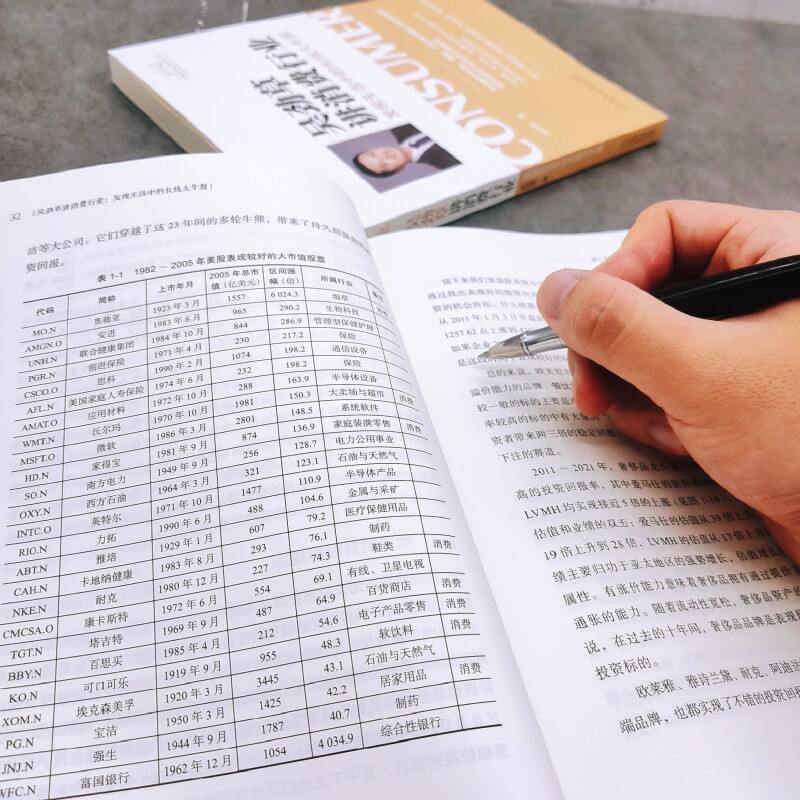 吴劲草
讲消费行业
CONSUMER
32 | 吴劲草讲消费行业：发现生活中的长线大牛股 |
洁等大公司。它们穿越了这 23 年间的多轮牛熊，带来了持久而强劲的
资回报。
表 1-1 1982 ～ 2005 年美股表现较好的大市值股票
代码 简称 上市年月 2005 年总市值（亿美元） 区间涨幅（倍） 所属行业
MO.N 奥驰亚 1923 年 3 月 1557 6 024.3 烟草
AMGN.O 安进 1983 年 6 月 965 290.2 生物科技
UNH.N 联合健康集团 1984 年 10 月 844 286.9 管理型保健护理
PGR.N 前进保险 1971 年 4 月 230 217.2 保险
CSCO.O 思科 1990 年 2 月 1074 198.2 通信设备
AFL.N 美国家庭人寿保险 1974 年 6 月 232 198.2 保险
AMAT.O 应用材料 1972 年 10 月 288 163.9 半导体设备
WMT.N 沃尔玛 1970 年 10 月 1981 150.3 大卖场与超市 消费
MSFT.O 微软 1986 年 3 月 2801 148.5 系统软件
HD.N 家得宝 1981 年 9 月 874 136.9 家庭装潢零售 消费
SO.N 南方电力 1949 年 9 月 256 128.7 电力公用事业
OXY.N 西方石油 1964 年 3 月 321 123.1 石油与天然气
INTC.O 英特尔 1971 年 10 月 1477 110.9 半导体产品
RIO.N 力拓 1990 年 6 月 488 104.6 金属与采矿
ABT.N 雅培 1929 年 1 月 607 79.2 医疗保健用品
CAH.N 卡地纳健康 1983 年 8 月 293 76.1 制药
NKE.N 耐克 1980 年 12 月 227 74.3 鞋类 消费
CMCSA.O 康卡斯特 1972 年 6 月 554 69.1 有线、卫星电视
TGT.N 塔吉特 1969 年 9 月 487 64.9 百货商店 消费
BBY.N 百思买 1985 年 4 月 212 54.6 电子产品零售 消费
KO.N 可口可乐 1919 年 9 月 955 48.3 软饮料 消费
XOM.N 埃克森美孚 1920 年 3 月 3445 43.1 石油与天然气
PG.N 宝洁 1950 年 3 月 1425 42.2 居家用品 消费
JNJ.N 强生 1944 年 9 月 1787 40.7 制药
WFC.N 富国银行 1962 年 12 月 1054 4 034.9 综合性银行
接下来我们
通过找出表现好的
资的机会所在。什么
从 2011 年 1 月 3 日
1257.62 点上涨到
如果企业
是这
总的来说，欧美
溢价能力的品牌、餐饮
较一般的标的主要是
率较高的标的中有大量
资者带来两三倍的稳定回报
下注的赛道。
2011 ～ 2021 年，奢侈品龙头
高的投资回报率，其中爱马仕的股价
LVMH 均实现接近 5 倍的上涨（见图 1-14）
估值和业绩的双击，爱马仕的估值从 39 倍上升
19 倍上升到 28 倍，LVMH 的估值从 17 倍上升
续主要归功于亚太地区的强势增长，估值增长
属性。有涨价能力意味着奢侈品拥有通过提价
通胀的能力。随着流动性宽松、奢侈品资产的
说，在过去的十年间，奢侈品品牌是表现
投资标的。
欧莱雅、雅诗兰黛、耐克、阿迪达
端品牌，也都实现了不错的投资回报